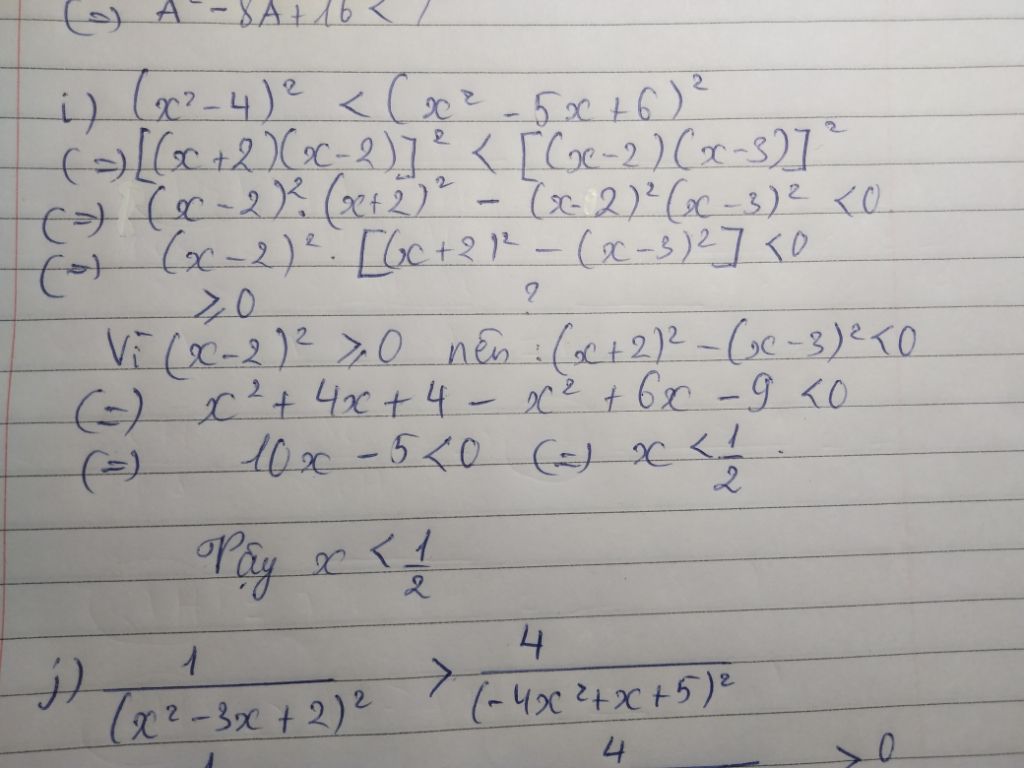 (=) A² - 8A + 16 <
i) (x² - 4)² < (x² - 5x + 6)²
(=) [(x+2)(x-2)]² < [(x-2)(x-3)]²
(=) (x-2)².(x+2)² - (x-2)²(x-3)² <0
(=) (x-2)² . [(x+2)² - (x-3)²] <0
≥0 ?
Vì (x-2)² ≥0 nên : (x+2)² - (x-3)² <0
(=) x² + 4x + 4 - x² + 6x - 9 <0
(=) 10x - 5 <0 (=) x < 1/2 .
Vậy x < 1/2
j) 1/(x² - 3x + 2)² > 4/(-4x² + x + 5)²
1 4 > 0